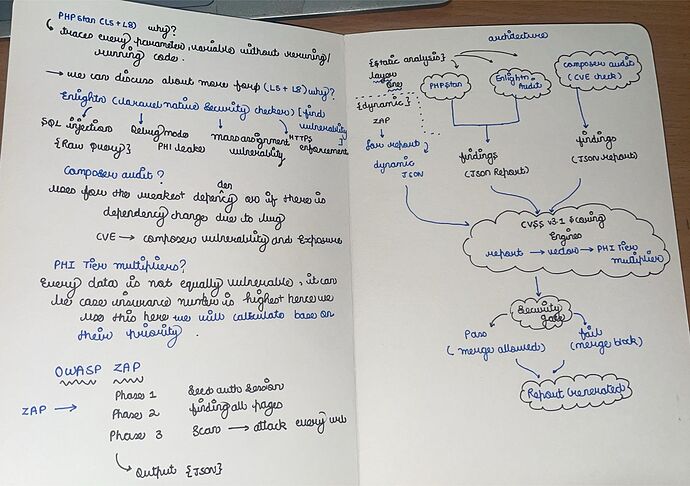 PHPstan (L5 + L8) why?
traces every parameter, variable without rerunning/
running code.
→ we can discuss about more for (L5 + L8) why?
Enlightn (Laravel native Security checker) [find
vulnerability]
SQL injection Debug mode mass assignment HTTPS
{Raw Query} PHI leaks vulnerability enforcement
Composer audit?
den
uses for the weakest depency or if there is
dependency change due to bug
CVE → composer vulnerability and Exposure
PHI Tier multipliers?
Every data is not equally vulnerable, it can
be case insurance number is highest hence we
use this here we will calculate base on
their priority.
OWASP ZAP
ZAP →
Phase 1 Seed auth Session
Phase 2 finding all pages
Phase 3 Scan → attack every url
Output {Json}
architecture
{static analysis}
layer
one
PHPStan
Enlightn
Audit
composer audit
(CVE check)
{dynamic}
ZAP
for report
dynamic
JSON
findings
(Json Report)
findings
(JSON report)
CVSS v3.1 Scoring
Engines
report → vector → PHI Tier
multiplier
Security
gate
Pass
(merge allowed)
fail
(merge block)
Report Generated